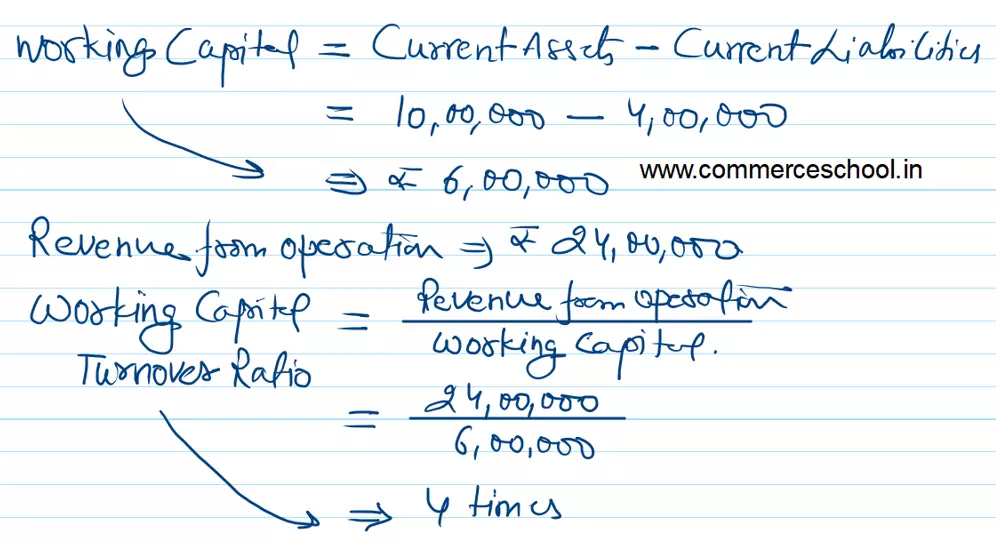 Working Capital = Current Assets - Current Liabilities
= 10,00,000 - 4,00,000
⇒ ₹ 6,00,000
www.commerceschool.in
Revenue from operation ⇒ ₹ 24,00,000
Working Capital Turnover Ratio = Revenue from operation / Working Capital.
= 24,00,000 / 6,00,000
⇒ 4 times